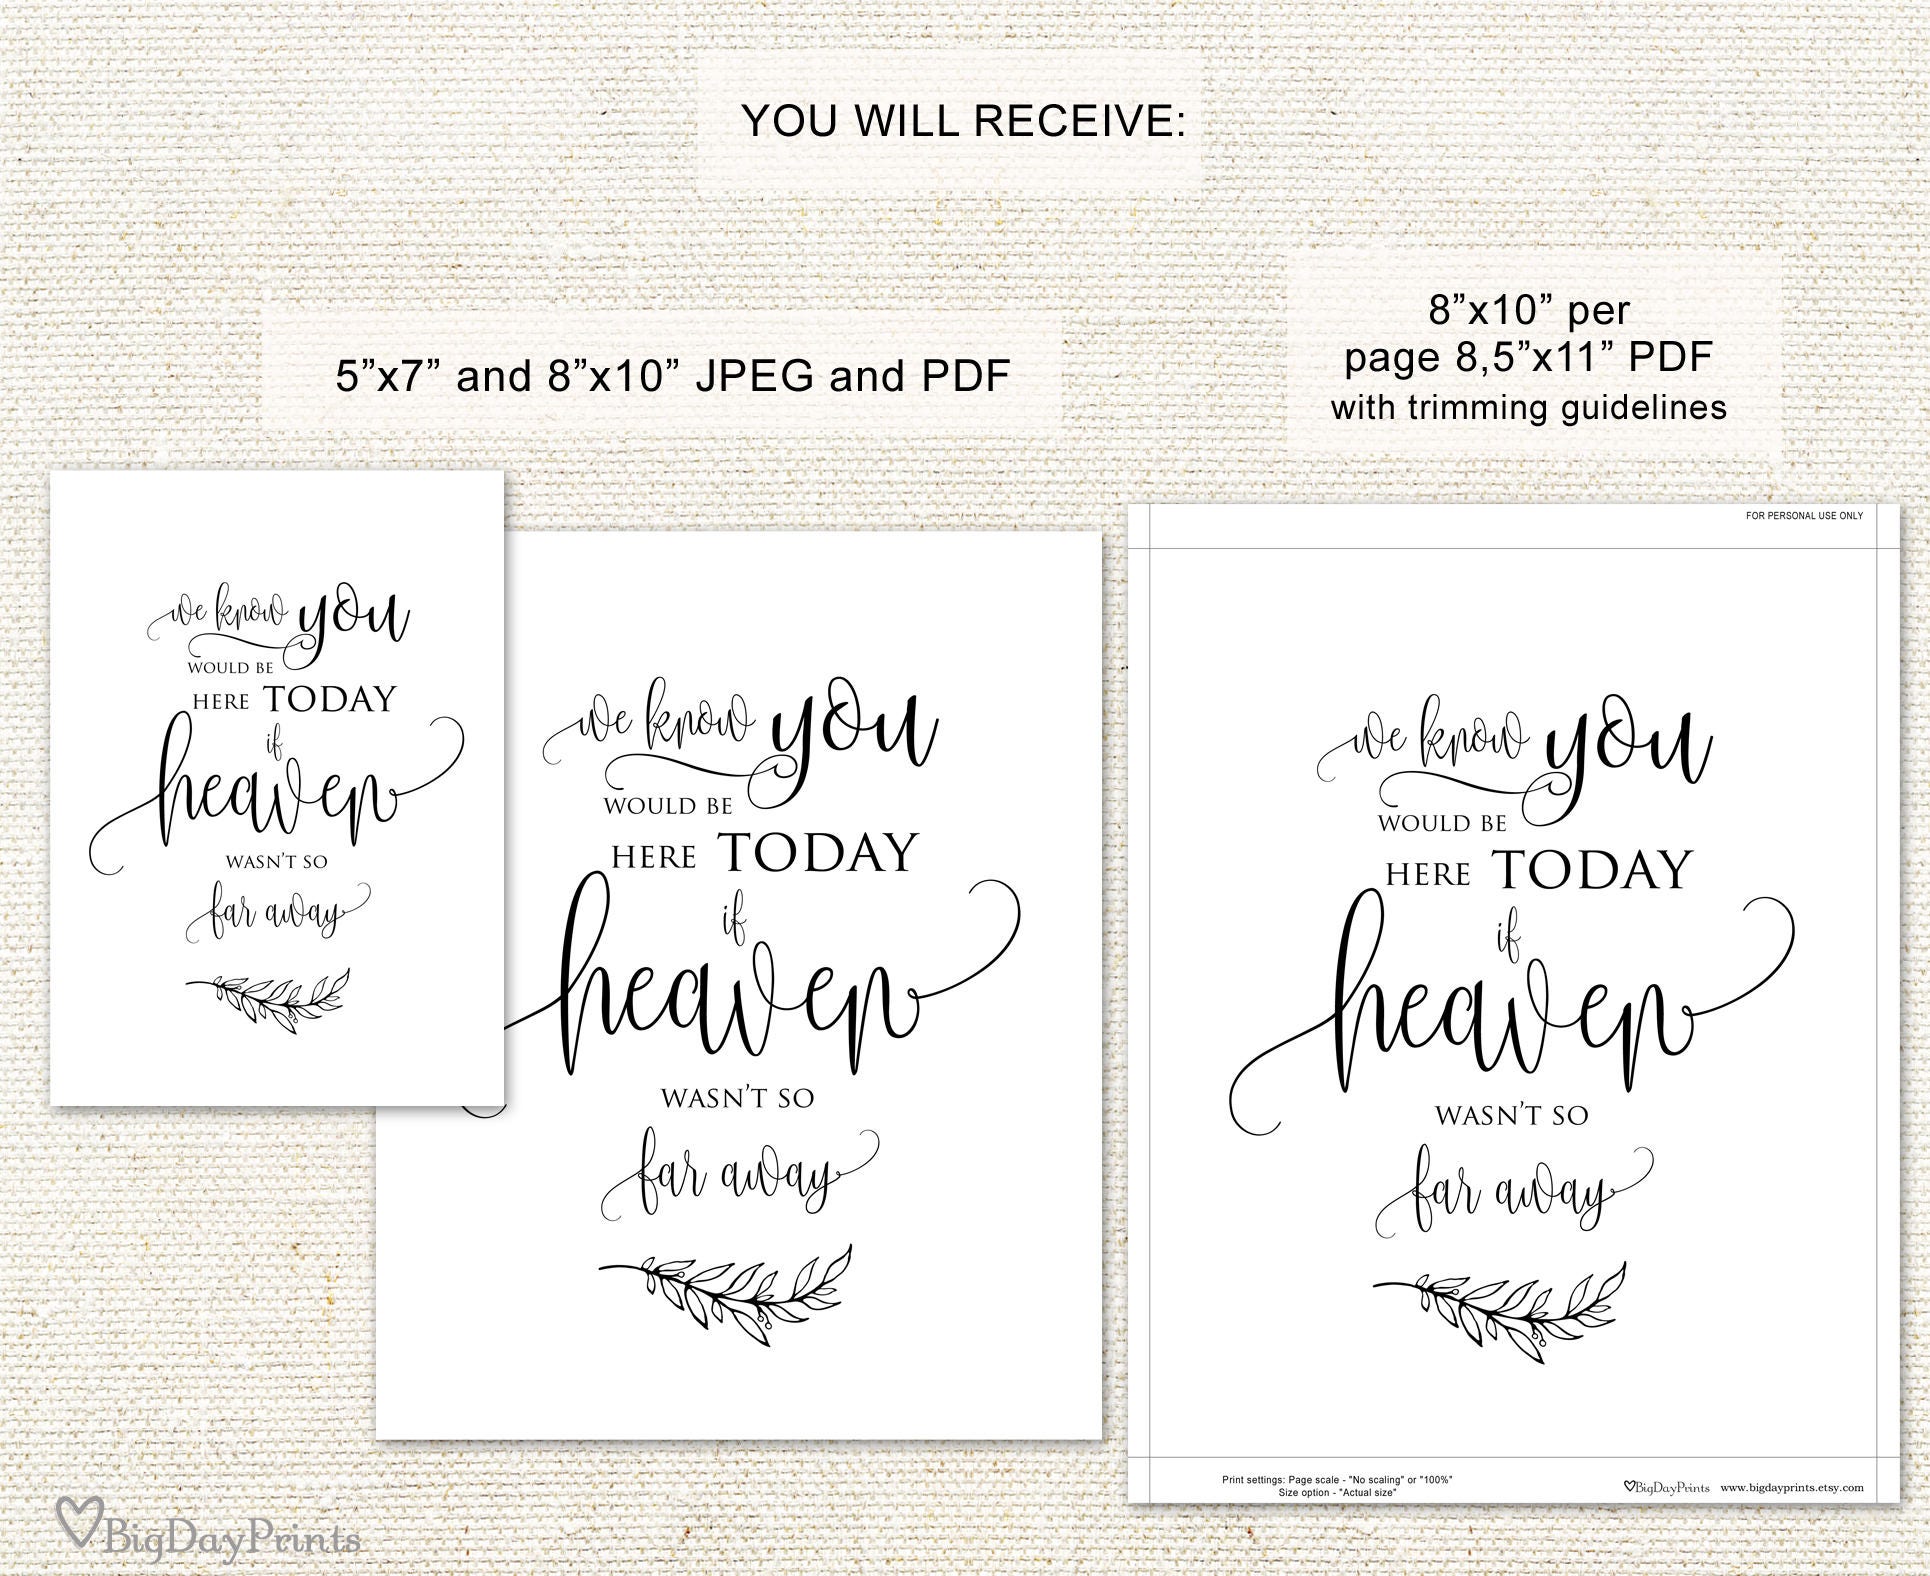 YOU WILL RECEIVE:
5”x7” and 8”x10” JPEG and PDF
8”x10” per
page 8,5”x11” PDF
with trimming guidelines
we know you
WOULD BE
HERE TODAY
if
heaven
WASN’T SO
far away
we know you
WOULD BE
HERE TODAY
if
heaven
WASN’T SO
far away
FOR PERSONAL USE ONLY
we know you
WOULD BE
HERE TODAY
if
heaven
WASN’T SO
far away
Print settings: Page scale - "No scaling" or "100%"
Size option - "Actual size"
BigDayPrints www.bigdayprints.etsy.com
BigDayPrints